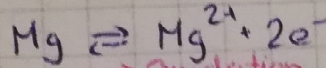 Mg ⇌ Mg²⁺ + 2e⁻